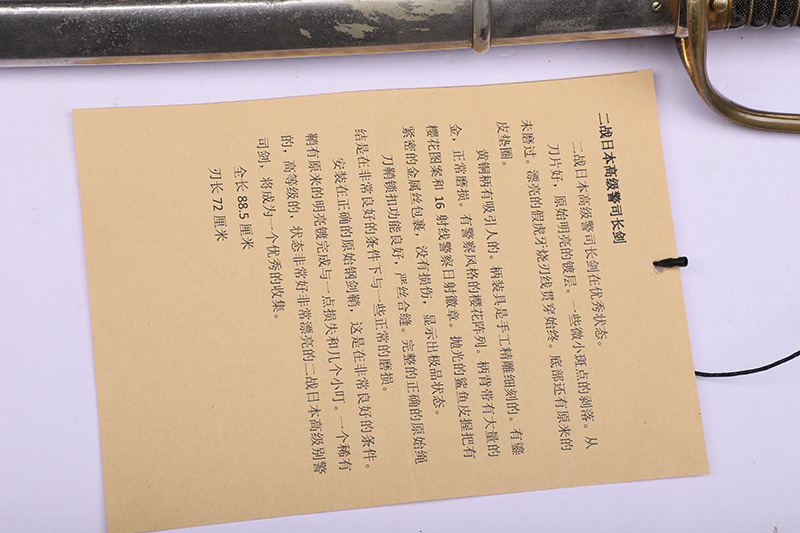 二战日本高级警司长剑
二战日本高级警司长剑在优秀状态。
刀片好，原始明亮的镀层。一些微小斑点的剥落。从
未磨过。漂亮的假虎牙烧刃线贯穿始终。底部还有原来的
皮垫圈。
黄铜柄有吸引人的。柄装具是手工精雕细刻的。有鎏
金，正常磨损。有警察风格的樱花阵列。柄背带有大量的
樱花图案和 16 射线警察日射徽章。抛光的鲨鱼皮握把有
紧密的金属丝包裹，没有损伤，显示出极品状态。
刀鞘锁扣功能良好，严丝合缝。完整的正确的原始绳
结是在非常良好的条件下与一些正常的磨损。
安装在正确的原始钢剑鞘，这是在非常良好的条件。
鞘有原来的明亮镀完成与一点损失和几个小叮。一个稀有
的，高等级的，状态非常好非常漂亮的二战日本高级别警
司剑，将成为一个优秀的收集。
全长 88.5 厘米
刃长 72 厘米